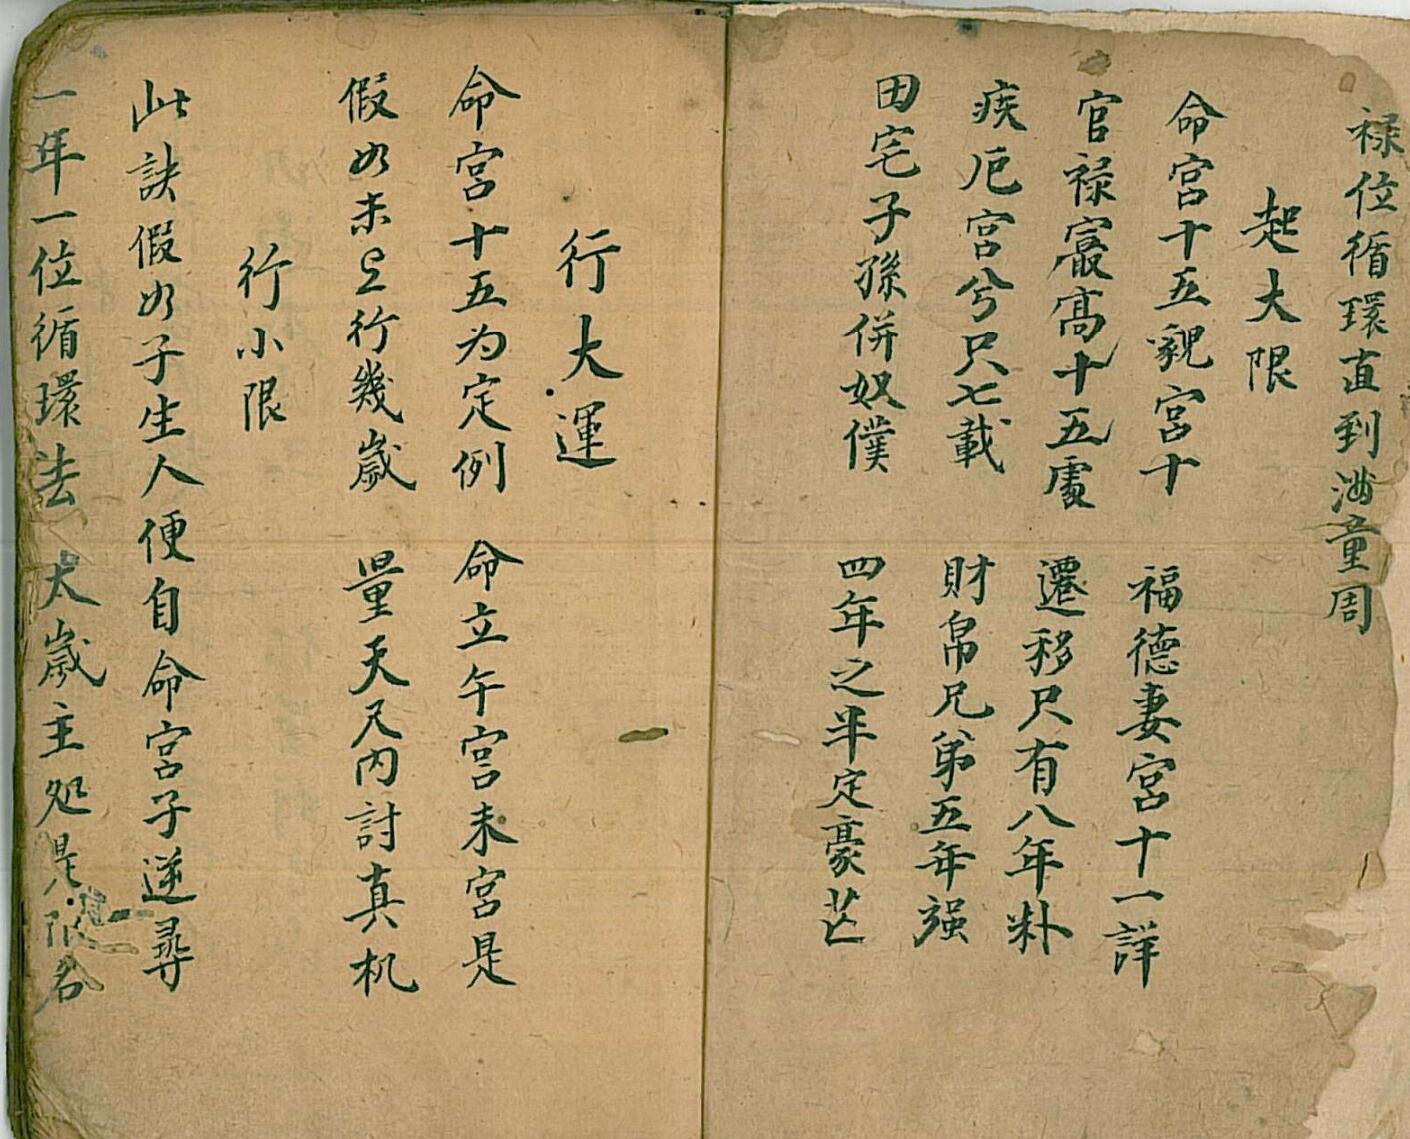 禄位循環直到满童周
起大限
命宫十五貌宫十 福德妻宫十一詳
官禄㝡高十五處 遷移只有八年粆
疾厄宫兮只七載 財帛兄弟五年强
田宅子孫併奴僕 四年之半定豪芒
行大運
命宫十五为定例 命立午宫未宫是
假如未上行幾歲 量天尺内討真机
行小限
此訣假如子生人便自命宫子逆尋
一年一位循環法 大歲主处是限名